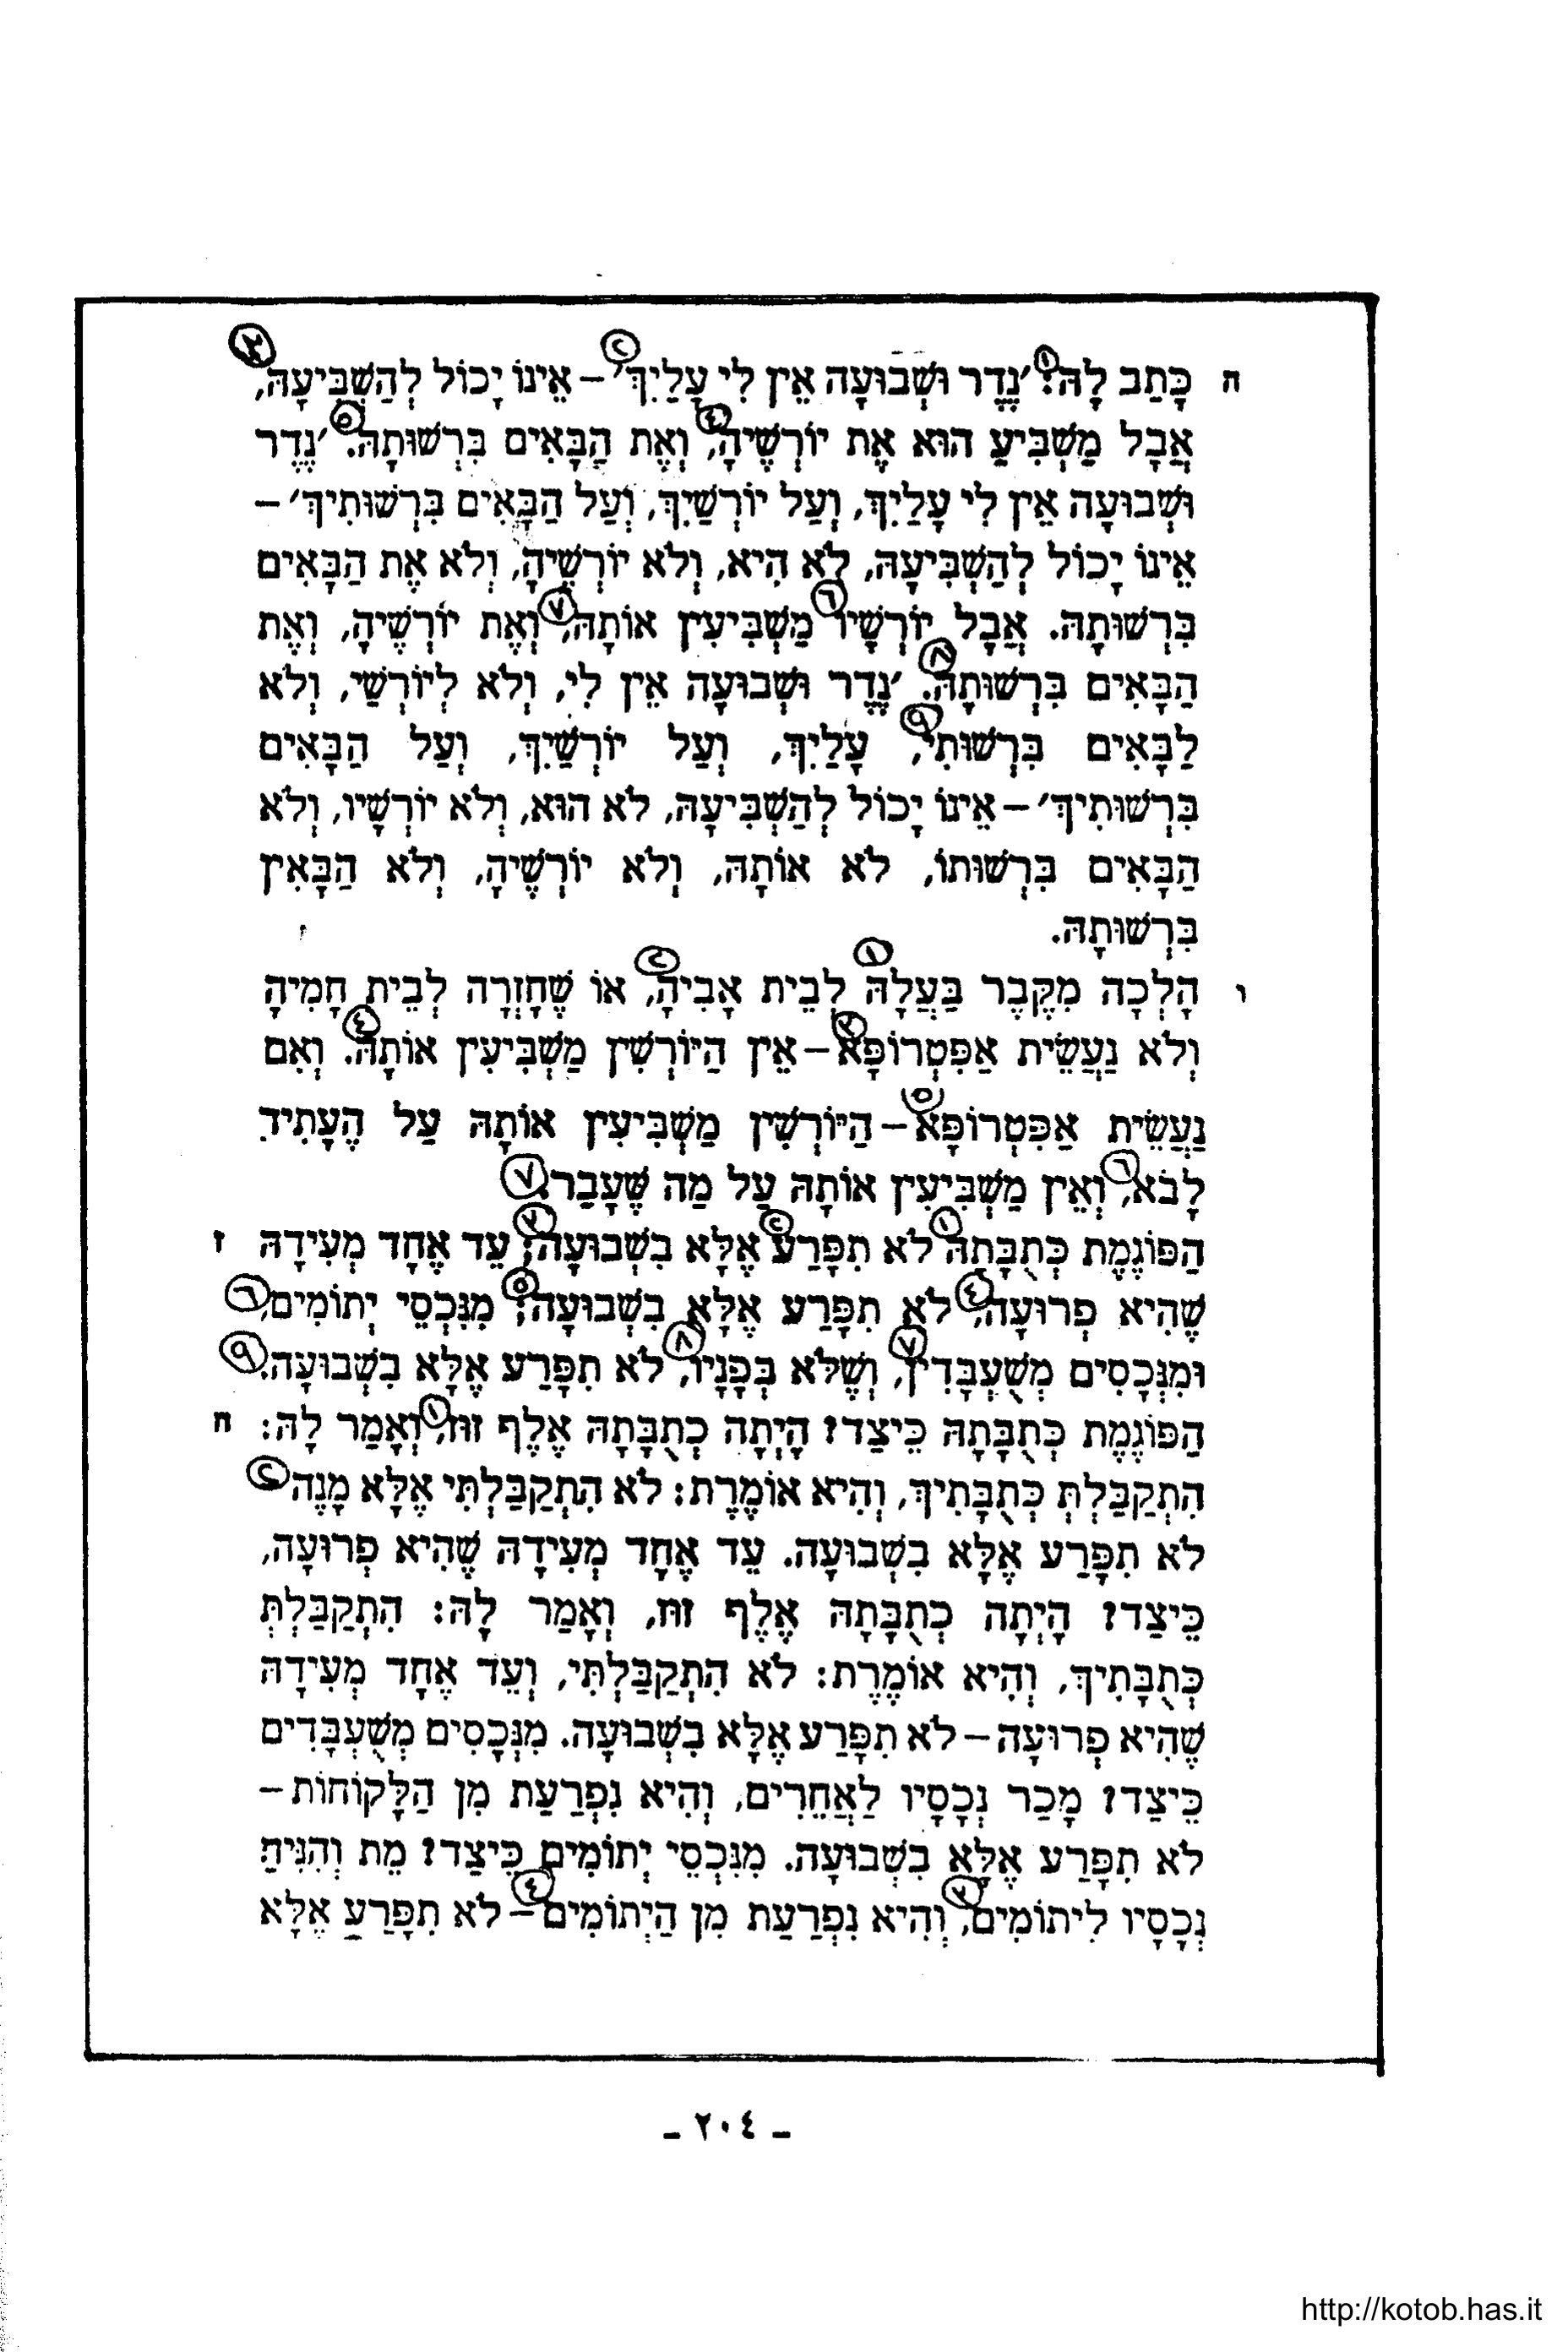 ח כָּתַב לָהּ: ׳נֶדֶר וּשְׁבוּעָה אֵין לִי עָלַיִךְ׳ – אֵינוֹ יָכוֹל לְהַשְׁבִּיעָהּ,
אֲבָל מַשְׁבִּיעַ הוּא אֶת יוֹרְשֶׁיהָ, וְאֶת הַבָּאִים בִּרְשׁוּתָהּ. ׳נֶדֶר
וּשְׁבוּעָה אֵין לִי עָלַיִךְ, וְעַל יוֹרְשַׁיִךְ, וְעַל הַבָּאִים בִּרְשׁוּתִיךְ׳ –
אֵינוֹ יָכוֹל לְהַשְׁבִּיעָהּ, לֹא הִיא, וְלֹא יוֹרְשֶׁיהָ, וְלֹא אֶת הַבָּאִים
בִּרְשׁוּתָהּ. אֲבָל יוֹרְשָׁיו מַשְׁבִּיעִין אוֹתָהּ, וְאֶת יוֹרְשֶׁיהָ, וְאֶת
הַבָּאִים בִּרְשׁוּתָהּ. ׳נֶדֶר וּשְׁבוּעָה אֵין לִי, וְלֹא לְיוֹרְשַׁי, וְלֹא
לַבָּאִים בִּרְשׁוּתִי, עָלַיִךְ, וְעַל יוֹרְשַׁיִךְ, וְעַל הַבָּאִים
בִּרְשׁוּתִיךְ׳ – אֵינוֹ יָכוֹל לְהַשְׁבִּיעָהּ, לֹא הוּא, וְלֹא יוֹרְשָׁיו, וְלֹא
הַבָּאִים בִּרְשׁוּתוֹ, לֹא אוֹתָהּ, וְלֹא יוֹרְשֶׁיהָ, וְלֹא הַבָּאִין
בִּרְשׁוּתָהּ.
ו הָלְכָה מִקֶּבֶר בַּעֲלָהּ לְבֵית אָבִיהָ, אוֹ שֶׁחָזְרָה לְבֵית חָמִיהָ
וְלֹא נַעֲשֵׂית אַפִּטְרוֹפָּא – אֵין הַיּוֹרְשִׁין מַשְׁבִּיעִין אוֹתָהּ. וְאִם
נַעֲשֵׂית אַפִּטְרוֹפָּא – הַיּוֹרְשִׁין מַשְׁבִּיעִין אוֹתָהּ עַל הֶעָתִיד
לָבֹא, וְאֵין מַשְׁבִּיעִין אוֹתָהּ עַל מַה שֶּׁעָבַר.
ז הַפּוֹגֶמֶת כְּתֻבָּתָהּ לֹא תִפָּרַע אֶלָּא בִשְׁבוּעָה; עֵד אֶחָד מְעִידָהּ
שֶׁהִיא פְרוּעָה, לֹא תִפָּרַע אֶלָּא בִשְׁבוּעָה; מִנִּכְסֵי יְתוֹמִים,
וּמִנְּכָסִים מְשֻׁעְבָּדִין, וְשֶׁלֹּא בְּפָנָיו, לֹא תִפָּרַע אֶלָּא בִשְׁבוּעָה.
ח הַפּוֹגֶמֶת כְּתֻבָּתָהּ כֵּיצַד? הָיְתָה כְתֻבָּתָהּ אֶלֶף זוּז, וְאָמַר לָהּ:
הִתְקַבַּלְתְּ כְּתֻבָּתִיךְ, וְהִיא אוֹמֶרֶת: לֹא הִתְקַבַּלְתִּי אֶלָּא מָנֶה
לֹא תִפָּרַע אֶלָּא בִשְׁבוּעָה. עֵד אֶחָד מְעִידָהּ שֶׁהִיא פְרוּעָה,
כֵּיצַד? הָיְתָה כְתֻבָּתָהּ אֶלֶף זוּז, וְאָמַר לָהּ: הִתְקַבַּלְתְּ
כְּתֻבָּתִיךְ, וְהִיא אוֹמֶרֶת: לֹא הִתְקַבַּלְתִּי, וְעֵד אֶחָד מְעִידָהּ
שֶׁהִיא פְרוּעָה – לֹא תִפָּרַע אֶלָּא בִשְׁבוּעָה. מִנְּכָסִים מְשֻׁעְבָּדִים
כֵּיצַד? מָכַר נְכָסָיו לַאֲחֵרִים, וְהִיא נִפְרַעַת מִן הַלָּקוֹחוֹת –
לֹא תִפָּרַע אֶלָּא בִשְׁבוּעָה. מִנִּכְסֵי יְתוֹמִים כֵּיצַד? מֵת וְהִנִּיחַ
נְכָסָיו לִיתוֹמִים, וְהִיא נִפְרַעַת מִן הַיְתוֹמִים – לֹא תִפָּרַע אֶלָּא
– ٢٠٤ –
http://kotob.has.it